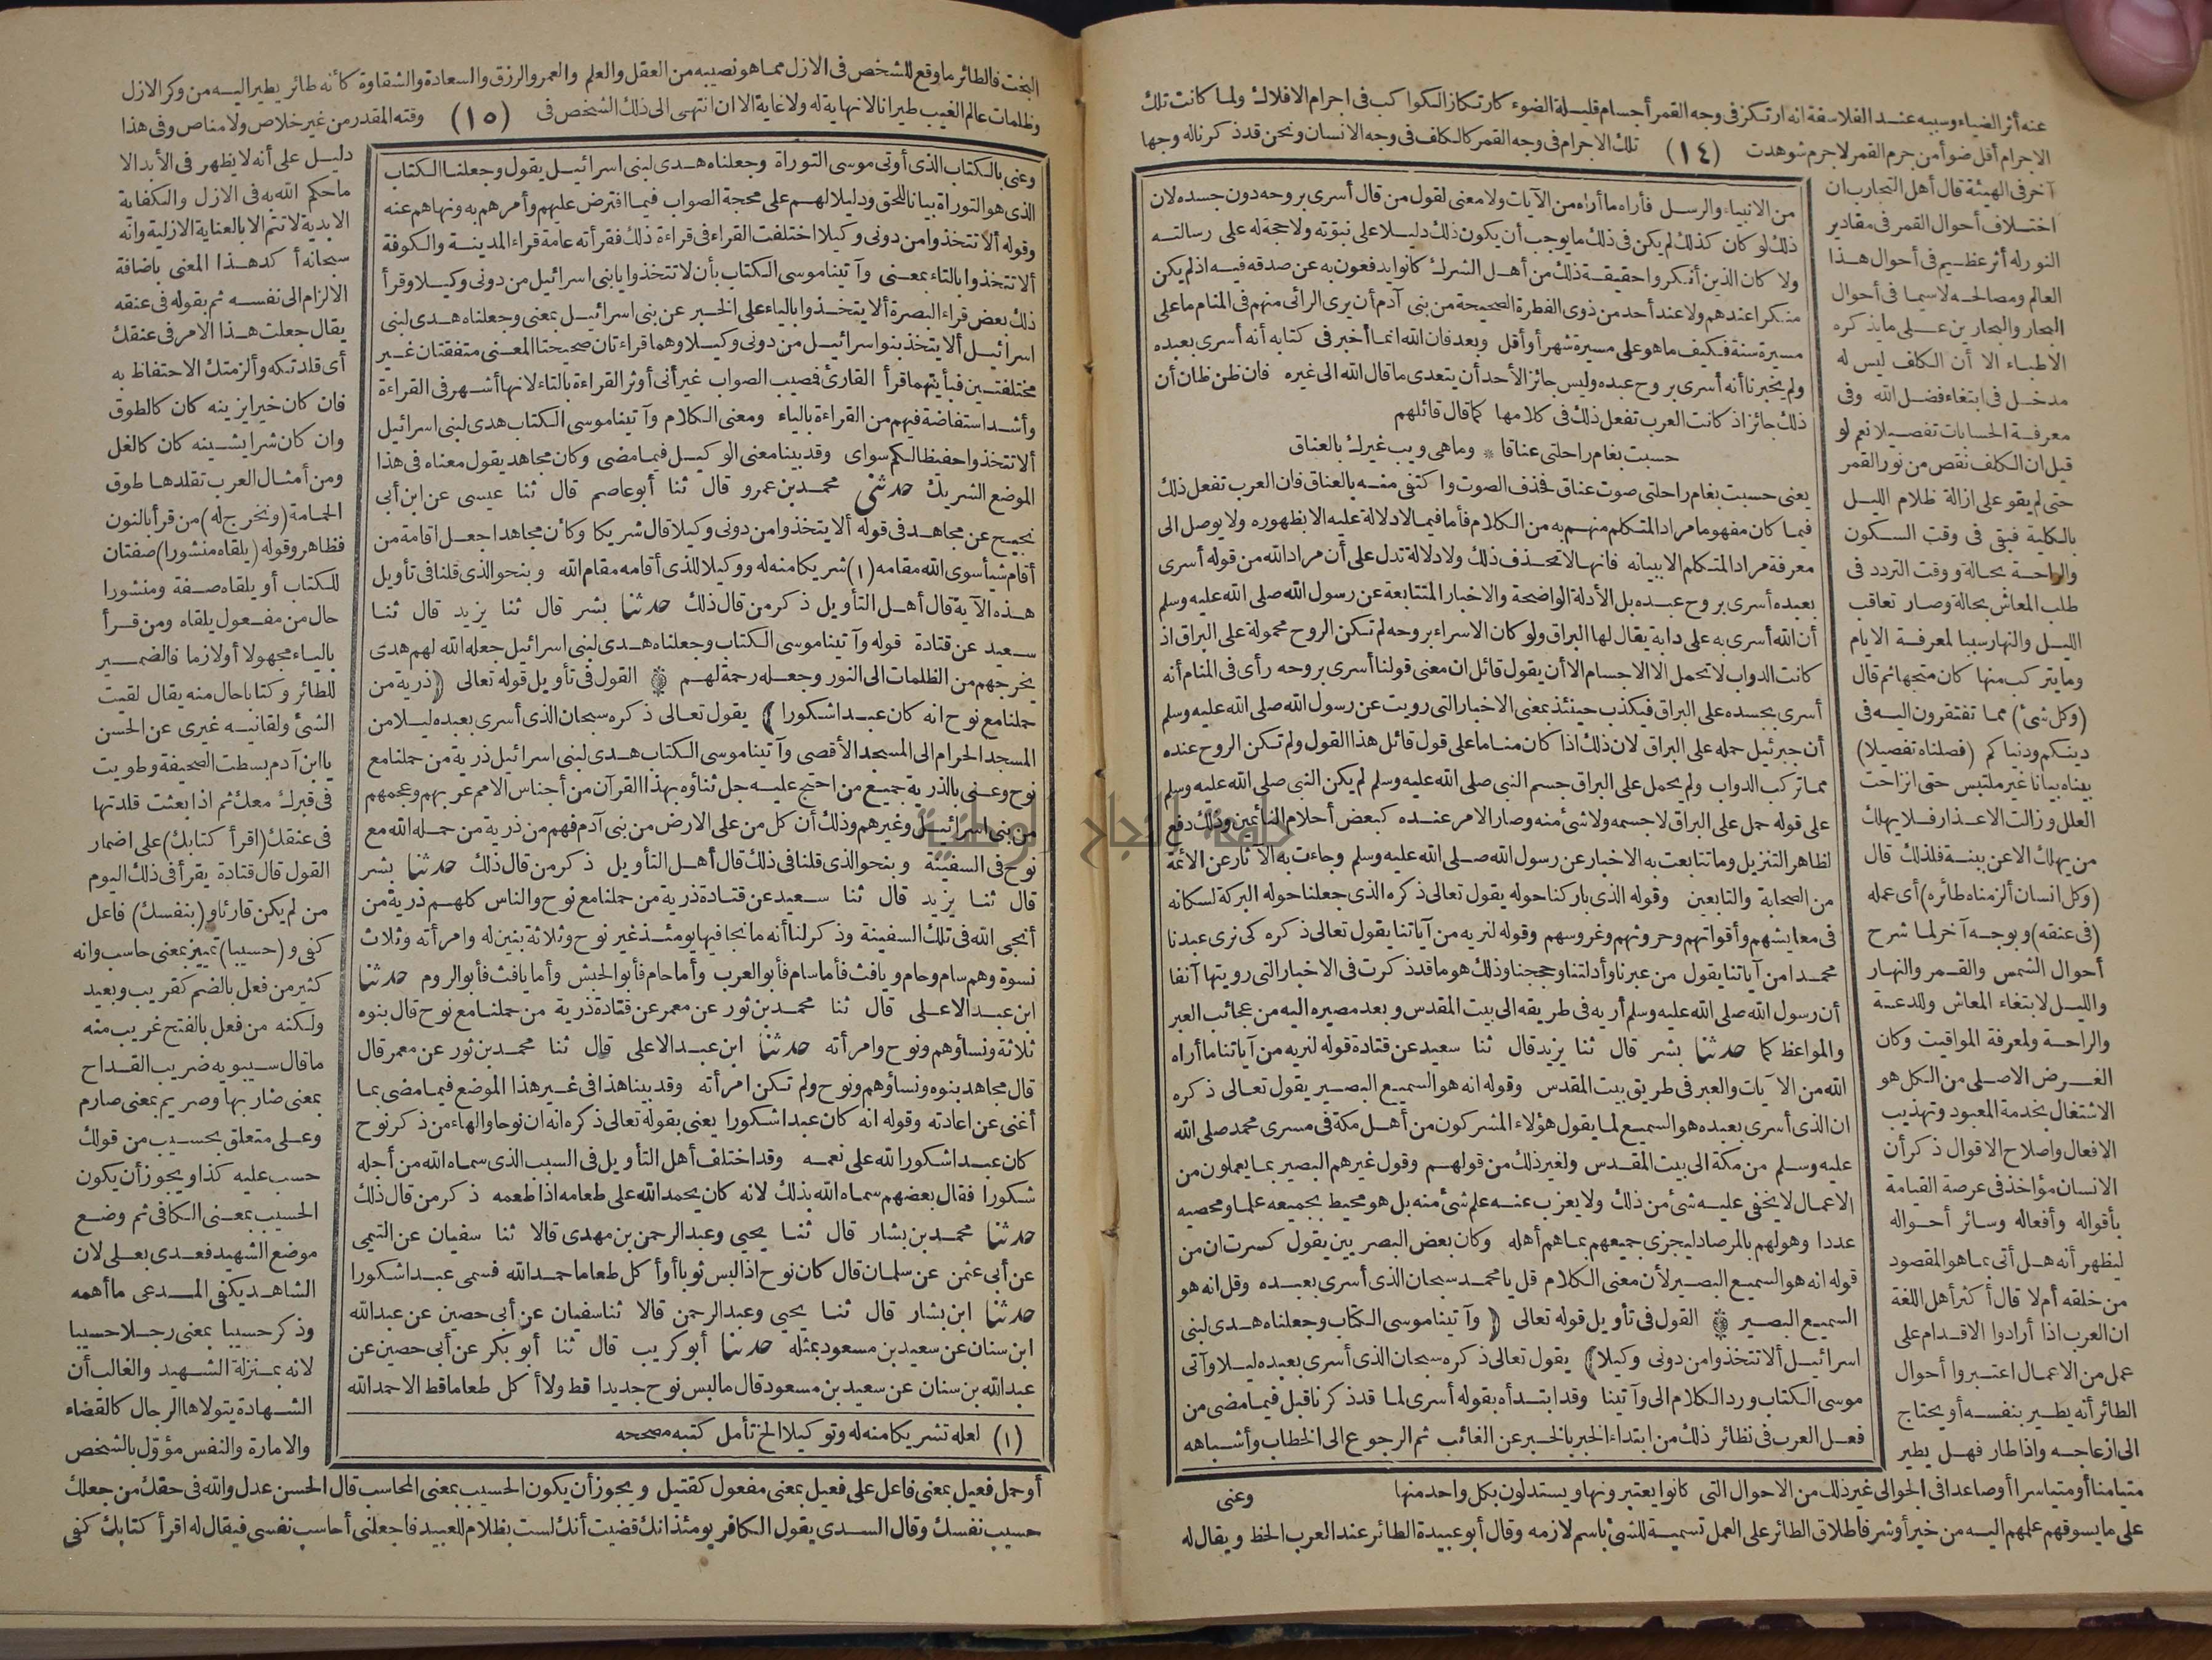 عنه أثر الضياء وسببه عند الفلاسفة انه ارتكز فى وجه القمر أجسام قليلة الضوء كارتكاز الكواكب فى اجرام الافلاك ولما كانت تلك
الاجرام أقل ضوأ من جرم القمر لاجرم شوهدت (١٤) تلك الاجرام فى وجه القمر كالكلف فى وجه الانسان ونحن قد ذكرنا له وجها
آخر فى الهيئة قال أهل التجارب ان
اختلاف أحوال القمر فى مقادير
النور له أثر عظيم فى أحوال هذا
العالم ومصالحه لاسيما فى أحوال
البحار والبحارين على ما يذكره
الاطباء الا أن الكلف ليس له
مدخل فى ابتغاء فضل الله وفى
معرفة الحسابات تفصيلا نعم لو
قيل ان الكلف نقص من نور القمر
حتى لم يقو على ازالة ظلام الليل
بالكلية فبقى فى وقت السكون
والراحة بحالة ووقت التردد فى
طلب المعاش بحالة وصار تعاقب
الليل والنهار سببا لمعرفة الايام
وما يتركب منها كان متجها ثم قال
(وكل شئ) مما تفتقرون اليه فى
دينكم ودنياكم (فصلناه تفصيلا)
بيناه بيانا غير ملتبس حتى انزاحت
العلل وزالت الاعذار فلا يهلك
من يهلك الا عن بينة فلذلك قال
(وكل انسان ألزمناه طائره) أى عمله
(فى عنقه) وبوجه آخر لما شرح
أحوال الشمس والقمر والنهار
والليل لابتغاء المعاش وللدعة
والراحة ولمعرفة المواقيت وكان
الغرض الاصلى من الكل هو
الاشتغال بخدمة المعبود وتهذيب
الافعال واصلاح الاقوال ذكر أن
الانسان مؤاخذ فى عرصة القيامة
بأقواله وأفعاله وسائر أحواله
ليظهر أنه هل أتى بما هو المقصود
من خلقه أم لا قال أكثر أهل اللغة
ان العرب اذا أرادوا الاقدام على
عمل من الاعمال اعتبروا أحوال
الطائر أنه يطير بنفسه أو يحتاج
الى ازعاجه واذا طار فهل يطير
متيامنا أو متياسرا أو صاعدا فى الجو الى غير ذلك من الاحوال التى كانوا يعتبرونها ويستدلون بكل واحد منها
على ما يسوقهم علمهم اليه من خير أو شر فاطلاق الطائر على العمل تسمية للشئ باسم لازمه وقال أبو عبيدة الطائر عند العرب الحظ ويقال له
من الانبياء والرسل فأراه ما أراه من الآيات ولا معنى لقول من قال أسرى بروحه دون جسده لان
ذلك لو كان كذلك لم يكن فى ذلك ما يوجب أن يكون ذلك دليلا على نبوّته ولا حجة له على رسالته
ولا كان الذين أنكروا حقيقة ذلك من أهل الشرك كانوا يدفعون به عن صدقه فيه اذ لم يكن
منكرا عندهم ولا عند أحد من ذوى الفطرة الصحيحة من بنى آدم أن يرى الرائى منهم فى المنام ما على
مسيرة سنة فكيف ما هو على مسيرة شهر أو أقل وبعد فان الله انما أخبر فى كتابه أنه أسرى بعبده
ولم يخبرنا أنه أسرى بروح عبده وليس جائز الأحد أن يتعدى ما قال الله الى غيره فان ظن ظان أن
ذلك جائز اذ كانت العرب تفعل ذلك فى كلامها كما قال قائلهم
حسبت بغام راحلتى عناقا * وما هى ويب غيرك بالعناق
يعنى حسبت بغام راحلتى صوت عناق فحذف الصوت واكتفى منه بالعناق فان العرب تفعل ذلك
فيما كان مفهوما مراد المتكلم منهم به من الكلام فأما فيما لا دلالة عليه الا بظهوره ولا يوصل الى
معرفة مراد المتكلم الا ببيانه فانها لا تحذف ذلك ولا دلالة تدل على أن مراد الله من قوله أسرى
بعبده أسرى بروح عبده بل الأدلة الواضحة والاخبار المتتابعة عن رسول الله صلى الله عليه وسلم
أن الله أسرى به على دابة يقال لها البراق ولو كان الاسراء بروحه لم تكن الروح محمولة على البراق اذ
كانت الدواب لا تحمل الا الاجسام الا أن يقول قائل ان معنى قولنا أسرى بروحه رأى فى المنام أنه
أسرى بجسده على البراق فيكذب حينئذ بمعنى الاخبار التى رويت عن رسول الله صلى الله عليه وسلم
أن جبرئيل حمله على البراق لان ذلك اذا كان مناما على قول قائل هذا القول ولم تكن الروح عنده
مما تركب الدواب ولم يحمل على البراق جسم النبى صلى الله عليه وسلم لم يكن النبى صلى الله عليه وسلم
على قوله حمل على البراق لا جسمه ولا شئ منه وصار الامر عنده كبعض أحلام النائمين وذلك دفع
لظاهر التنزيل وما تتابعت به الاخبار عن رسول الله صلى الله عليه وسلم وجاءت به الآثار عن الائمة
من الصحابة والتابعين وقوله الذى باركنا حوله يقول تعالى ذكره الذى جعلنا حوله البركة لسكانه
فى معايشهم وأقواتهم وحروثهم وغروسهم وقوله لنريه من آياتنا يقول تعالى ذكره كى نرى عبدنا
محمدا من آياتنا يقول من عبرنا وأدلتنا وحججنا وذلك هو ما قد ذكرت فى الاخبار التى رويتها آنفا
أن رسول الله صلى الله عليه وسلم أريه فى طريقه الى بيت المقدس وبعد مصيره اليه من عجائب العبر
والمواعظ كما حدثنا بشر قال ثنا يزيد قال ثنا سعيد عن قتادة قوله لنريه من آياتنا ما أراه
الله من الآيات والعبر فى طريق بيت المقدس وقوله انه هو السميع البصير يقول تعالى ذكره
ان الذى أسرى بعبده هو السميع لما يقول هؤلاء المشركون من أهل مكة فى مسرى محمد صلى الله
عليه وسلم من مكة الى بيت المقدس ولغير ذلك من قولهم وقول غيرهم البصير بما يعملون من
الاعمال لا يخفى عليه شئ من ذلك ولا يعزب عنه علم شئ منه بل هو محيط بجميعه علما ومحصيه
عددا وهو لهم بالمرصاد ليجزى جميعهم بما هم أهله وكان بعض البصريين يقول كسرت ان من
قوله انه هو السميع البصير لأن معنى الكلام قل يا محمد سبحان الذى أسرى بعبده وقل انه هو
السميع البصير القول فى تأويل قوله تعالى (وآتينا موسى الكتاب وجعلناه هدى لبنى
اسرائيل ألا تتخذوا من دونى وكيلا) يقول تعالى ذكره سبحان الذى أسرى بعبده ليلا وآتى
موسى الكتاب ورد الكلام الى وآتينا وقد ابتدأه بقوله أسرى لما قد ذكرنا قبل فيما مضى من
فعل العرب فى نظائر ذلك من ابتداء الخبر بالخبر عن الغائب ثم الرجوع الى الخطاب وأشباهه
وعنى
البخت فالطائر ما وقع للشخص فى الازل مما هو نصيبه من العقل والعلم والعمر والرزق والسعادة والشقاوة كأنه طائر يطير اليه من وكر الازل
وظلمات عالم الغيب طيرانا لا نهاية له ولا غاية الا ان انتهى الى ذلك الشخص فى (١٥) وقته المقدر من غير خلاص ولا مناص وفى هذا
وعنى بالكتاب الذى أوتى موسى التوراة وجعلناه هدى لبنى اسرائيل يقول وجعلنا الكتاب
الذى هو التوراة بيانا للحق ودليلا لهم على محجة الصواب فيما افترض عليهم وأمرهم به ونهاهم عنه
وقوله ألا تتخذوا من دونى وكيلا اختلفت القراء فى قراءة ذلك فقرأته عامة قراء المدينة والكوفة
ألا تتخذوا بالتاء بمعنى وآتينا موسى الكتاب بأن لا تتخذوا يا بنى اسرائيل من دونى وكيلا وقرأ
ذلك بعض قراء البصرة ألا يتخذوا بالياء على الخبر عن بنى اسرائيل بمعنى وجعلناه هدى لبنى
اسرائيل ألا يتخذ بنو اسرائيل من دونى وكيلا وهما قراءتان صحيحتا المعنى متفقتان غير
مختلفتين فبأيتهما قرأ القارئ فصيب الصواب غير أنى أوثر القراءة بالتاء لانها أشهر فى القراءة
وأشد استفاضة فيهم من القراءة بالياء ومعنى الكلام وآتينا موسى الكتاب هدى لبنى اسرائيل
ألا تتخذوا حفيظا لكم سواى وقد بينا معنى الوكيل فيما مضى وكان مجاهد يقول معناه فى هذا
الموضع الشريك حدثنى محمد بن عمرو قال ثنا أبو عاصم قال ثنا عيسى عن ابن أبى
نجيح عن مجاهد فى قوله ألا يتخذوا من دونى وكيلا قال شريكا وكأن مجاهدا جعل اقامة من
أقام شيأ سوى الله مقامه (١) شريكا منه له ووكيلا للذى أقامه مقام الله وبنحو الذى قلنا فى تأويل
هذه الآية قال أهل التأويل ذكر من قال ذلك حدثنا بشر قال ثنا يزيد قال ثنا
سعيد عن قتادة قوله وآتينا موسى الكتاب وجعلناه هدى لبنى اسرائيل جعله الله لهم هدى
يخرجهم من الظلمات الى النور وجعله رحمة لهم القول فى تأويل قوله تعالى (ذرية من
حملنا مع نوح انه كان عبدا شكورا) يقول تعالى ذكره سبحان الذى أسرى بعبده ليلا من
المسجد الحرام الى المسجد الأقصى وآتينا موسى الكتاب هدى لبنى اسرائيل ذرية من حملنا مع
نوح وعنى بالذرية جميع من احتج عليه جل ثناؤه بهذا القرآن من أجناس الامم عربهم وعجمهم
من بنى اسرائيل وغيرهم وذلك أن كل من على الارض من بنى آدم فهم من ذرية من حمله الله مع
نوح فى السفينة وبنحو الذى قلنا فى ذلك قال أهل التأويل ذكر من قال ذلك حدثنا بشر
قال ثنا يزيد قال ثنا سعيد عن قتادة ذرية من حملنا مع نوح والناس كلهم ذرية من
أنجى الله فى تلك السفينة وذكر لنا أنه ما نجا فيها يومئذ غير نوح وثلاثة بنين له وامرأته وثلاث
نسوة وهم سام وحام ويافث فأما سام فأبو العرب وأما حام فأبو الحبش وأما يافث فأبو الروم حدثنا
ابن عبد الاعلى قال ثنا محمد بن ثور عن معمر عن قتادة ذرية من حملنا مع نوح قال بنوه
ثلاثة ونساؤهم ونوح وامرأته حدثنا ابن عبد الاعلى قال ثنا محمد بن ثور عن معمر قال
قال مجاهد بنوه ونساؤهم ونوح ولم تكن امرأته وقد بينا هذا فى غير هذا الموضع فيما مضى بما
أغنى عن اعادته وقوله انه كان عبدا شكورا يعنى بقوله تعالى ذكره انه ان نوحا والهاء من ذكر نوح
كان عبدا شكورا لله على نعمه وقد اختلف أهل التأويل فى السبب الذى سماه الله من أجله
شكورا فقال بعضهم سماه الله بذلك لانه كان يحمد الله على طعامه اذا طعمه ذكر من قال ذلك
حدثنا محمد بن بشار قال ثنا يحيى وعبد الرحمن بن مهدى قالا ثنا سفيان عن التيمى
عن أبى عثمن عن سلمان قال كان نوح اذا لبس ثوبا أو أكل طعاما حمد الله فسمى عبدا شكورا
حدثنا ابن بشار قال ثنا يحيى وعبد الرحمن قالا ثنا سفيان عن أبى حصين عن عبد الله
ابن سنان عن سعيد بن مسعود بمثله حدثنا أبو كريب قال ثنا أبو بكر عن أبى حصين عن
عبد الله بن سنان عن سعيد بن مسعود قال ما لبس نوح جديدا قط ولا أكل طعاما قط الا حمد الله
(١) لعله تشريكا منه له وتوكيلا الخ تأمل كتبه مصححه
دليل على أنه لا يظهر فى الأبد الا
ما حكم الله به فى الازل والكفاية
الابدية لا تتم الا بالعناية الازلية وانّه
سبحانه أكد هذا المعنى باضافة
الالزام الى نفسه ثم بقوله فى عنقه
يقال جعلت هذا الامر فى عنقك
أى قلدتكه وألزمتك الاحتفاظ به
فان كان خيرا يزينه كان كالطوق
وان كان شرا يشينه كان كالغل
ومن أمثال العرب تقلدها طوق
الحمامة (ونخرج له) من قرأ بالنون
فظاهر وقوله (يلقاه منشورا) صفتان
للكتاب أو يلقاه صفة ومنشورا
حال من مفعول يلقاه ومن قرأ
بالياء مجهولا أو لازما فالضمير
للطائر وكتابا حال منه يقال لقيت
الشئ ولقانيه غيرى عن الحسن
يا ابن آدم بسطت الصحيفة وطويت
فى قبرك معك ثم اذا بعثت قلدتها
فى عنقك (اقرأ كتابك) على اضمار
القول قال قتادة يقرأ فى ذلك اليوم
من لم يكن قارئا و(بنفسك) فاعل
كفى و(حسيبا) تمييز بمعنى حاسب وانه
كثير من فعل بالضم كقريب وبعيد
ولكنه من فعل بالفتح غريب منه
ما قال سيبويه ضريب القداح
بمعنى ضاربها وصريم بمعنى صارم
وعلى متعلق بحسيب من قولك
حسب عليه كذا ويجوز أن يكون
الحسيب بمعنى الكافى ثم وضع
موضع الشهيد فعدى بعلى لان
الشاهد يكفى المدعى ما أهمه
وذكر حسيبا بمعنى رجلا حسيبا
لانه بمنزلة الشهيد والغالب أن
الشهادة يتولاها الرجال كالقضاء
والامارة والنفس مؤوّل بالشخص
أو حمل فعيل بمعنى فاعل على فعيل بمعنى مفعول كقتيل ويجوز أن يكون الحسيب بمعنى المحاسب قال الحسن عدل والله فى حقك من جعلك
حسيب نفسك وقال السدى يقول الكافر يومئذ انك قضيت أنك لست بظلام للعبيد فاجعلنى أحاسب نفسى فيقال له اقرأ كتابك كفى